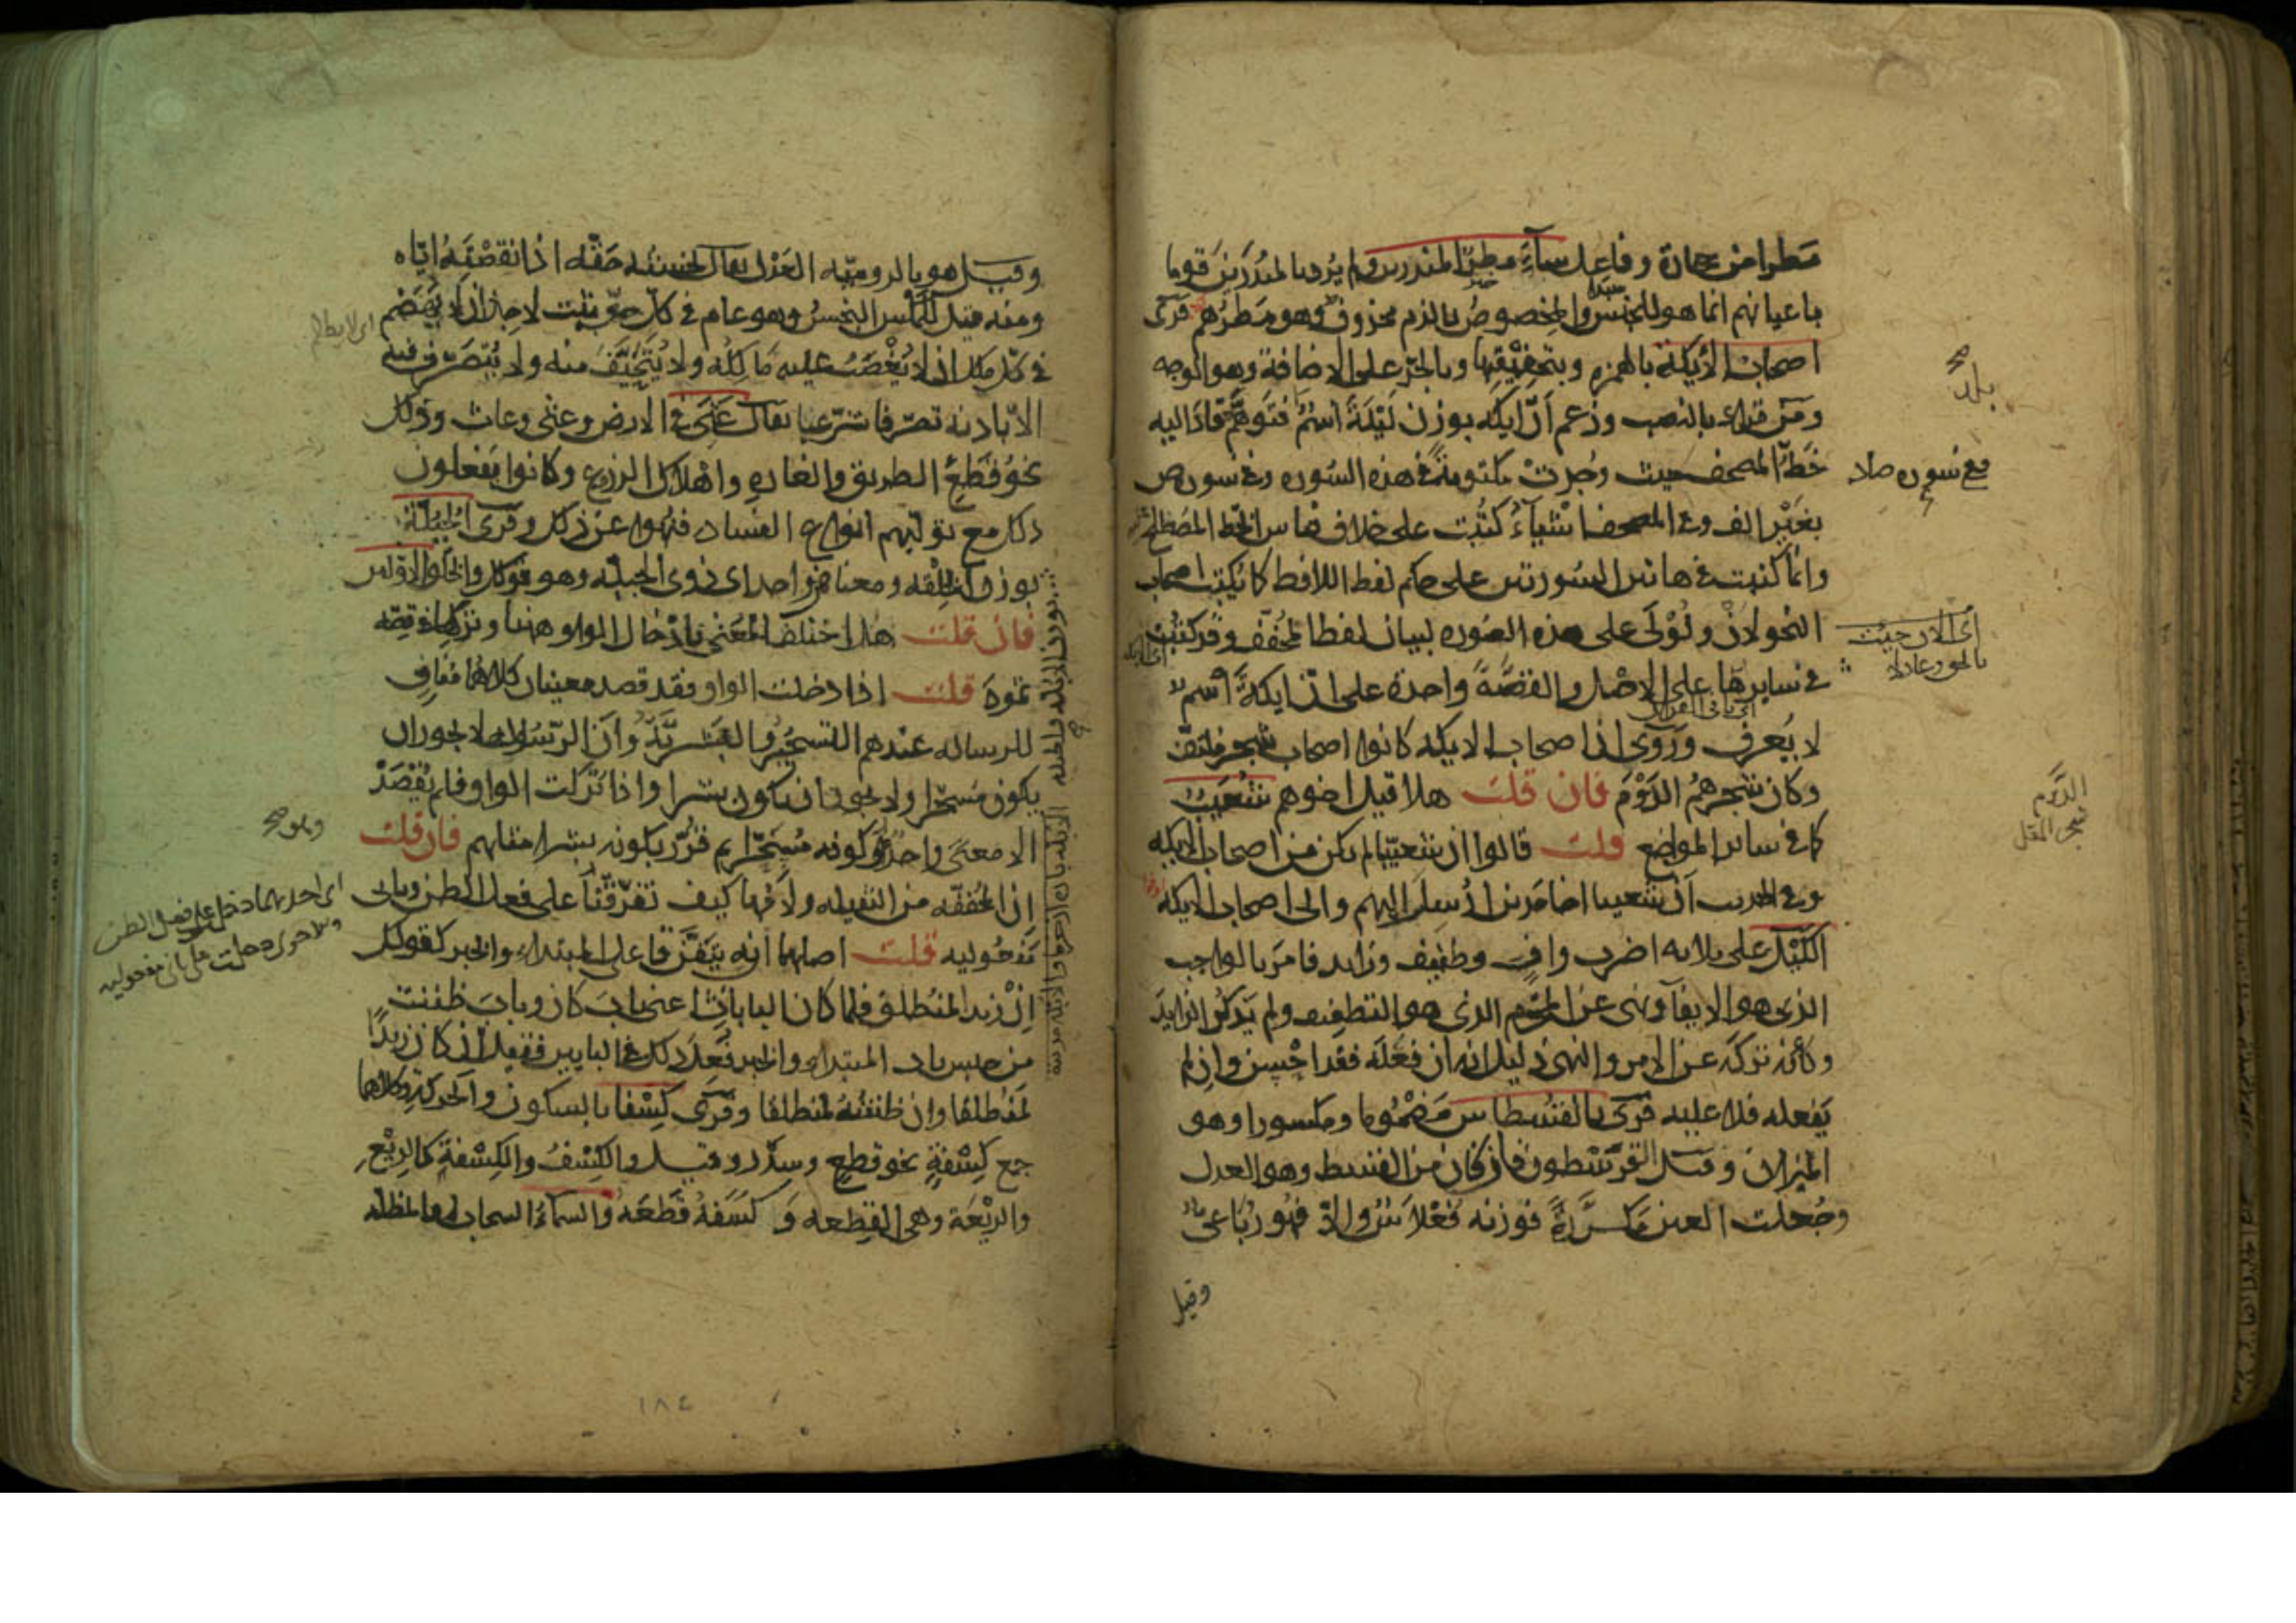 مطرا من حجارة وفاعل ساء مطر المنذرين ولم يرد بالمنذرين قوما
باعيانهم انما هو للجنس والمخصوص بالذم محذوف وهو مطرهم قرئ
اصحاب الأيكة بالهمزة وبتخفيفها وبالجر على الاضافة وهو الوجه
ومن قرأ بالنصب وزعم أنّ ليكة بوزن لَيْلَةَ اسم فتوهم قاد اليه
خط المصحف حيث وجدت مكتوبة في هذه السورة وفي سورة ص
بغير الف وفي المصحف اشياء كتبت على خلاف قياس الخط المصطلح
وانما كتبت في هاتين السورتين على حكم لفظ اللافظ كما يكتب اصحاب
النحو لان ولولى على هذه الصورة لبيان لفظ المخفف وقد كتبت
في سايرها على الاصل والقصة واحدة على ان ليكة اسم لا
لا يعرف وروى ان اصحاب الايكة كانوا اصحاب شجر ملتف
وكان شجرهم الدَّوْمَ فان قلت هلا قيل اخوهم شعيب
كما في ساير المواضع قلت قالوا ان شعيبا لم يكن من اصحاب الايكة
وفي الحديث أن شعيبا اخا مدين ارسل اليهم والى اصحاب الايكة
الكَيْل على ثلاثه اضرب واف وطفيف وزايد فامر بالواجب
الذى هو الايفاء ونهى عن المحرم الذى هو التطفيف ولم يذكر الزايد
وكأن تركه عن الامر والنهى دليل انه ان فعله فقد احسن وان لم
يفعله فلا عليه قرئ بالقسطاس مضموما ومكسورا وهو
الميزان وقيل القرسطون فان كان من القسط وهو العدل
وجعلت العين مكررة فوزنه فعلاس والا فهو رباعى
وقيل
بلد صح
مع سورة صاد
اى لان حيث
الدَّوم
شجر المقل
وقيل هو بالروميه العدل يقال بخسته حقه اذا نقصته اياه
ومنه قيل للمكس البخس وهو عام في كل حق ثبت لاحد ان لا يهضم
في كل ملك ان لا يغصب عليه مالكه ولا يتحيف منه ولا يتصرف فيه
الا باذنه تصرفا شرعيا يقال عثى في الارض وعثى وعاث وذلك
نحو قطع الطريق والغارة واهلاك الزروع وكانوا يفعلون
ذلك مع توليهم انواع الفساد فنهوا عن ذلك وقرئ الجُبُلّة
بوزن الأبلة ومعناهن واحد اى ذوى الجبلة وهو قولك والخلق الاولين
فان قلت هل اختلف المعنى بادخال الواو ههنا وتركها في قصه
ثمود قلت اذا دخلت الواو فقد قصد معنيان كلاهما مناف
للرساله عندهم التسحير والبشرية وأن الرسول لا يجوز ان
يكون مسحرا ولا يجوز ان يكون بشرا واذا تركت الواو فلم يقصد
الا معنى واحد وهو كونه مسحرا ثم قرر بكونه بشرا مثلهم فان قلت
إن المخففه من الثقيله ولامها كيف تفرقتا على فعل الظن وثانى
مفعوليه قلت اصلهما أنه يتفرقا على المبتداء والخبر كقولك
إنْ زيد لمنطلق فلما كان البابان اعنى باب كان وباب ظننت
من جنس باب المبتداء والخبر فعل ذلك في البابين فقيل ان كان زيدا
لمنطلقا وإن ظننته لمنطلقا وقرئ كسفا بالسكون والحركة وكلاهما
جمع كِسْفةٍ نحو قِطَعٍ وسِدَرٍ وقيل والكسف والكسفة كالرِيْعِ
والرِيْعَةِ وهى القطعه و كسفه قطعه والسماء السحاب او المظله
وهو صح
١٨٤